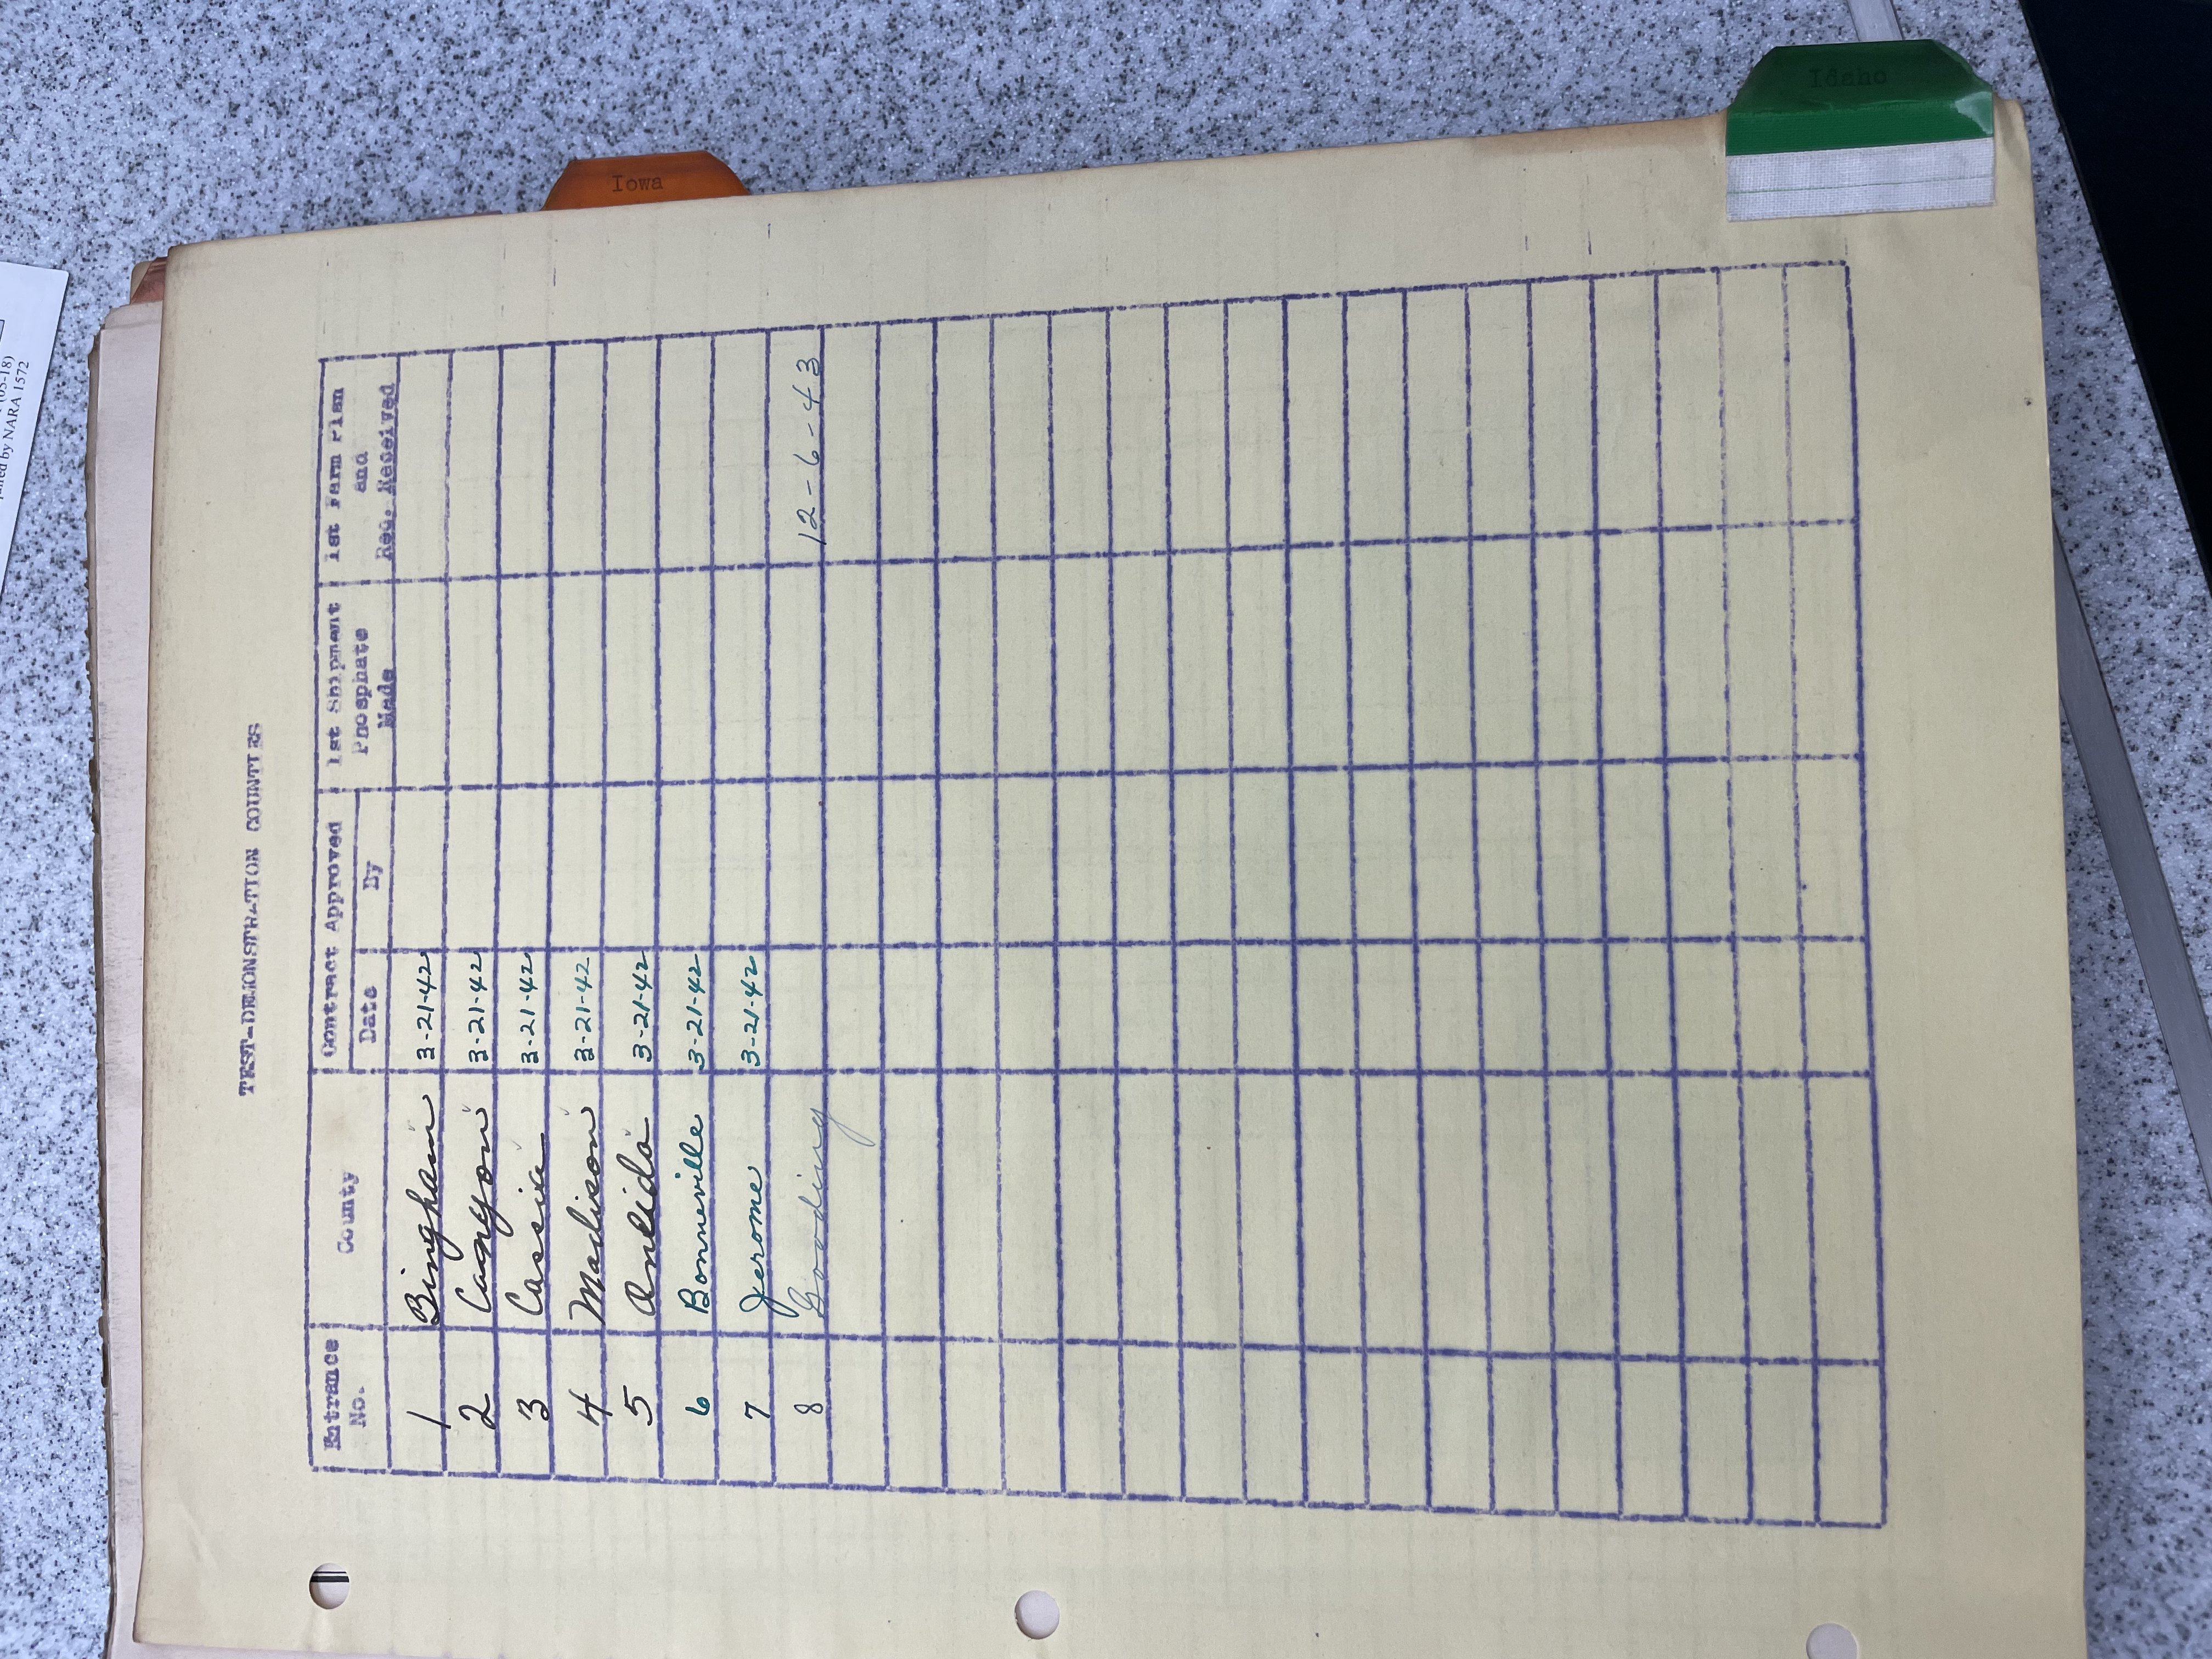 (05-18)
by NARA 1572
TEST-DEMONSTRATION COUNTIES
Entrance No. County Contract Approved Date By 1st Shipment Phosphate Made 1st Farm Plan and Req. Received
1 Bingham 3-21-42
2 Canyon 3-21-42
3 Cassia 3-21-42
4 Madison 3-21-42
5 Oneida 3-21-42
6 Bonneville 3-21-42
7 Jerome 3-21-42
8 Gooding 12-6-43
Iowa
Idaho